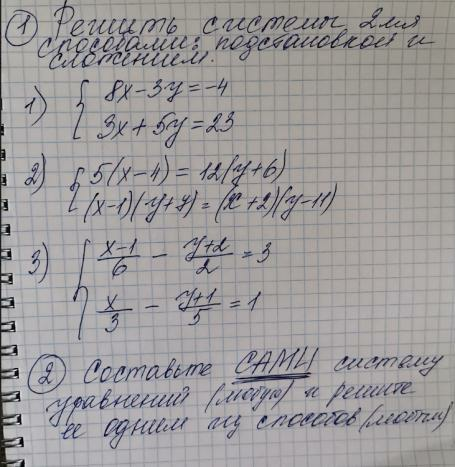 ① Решить системы 2мя
способами: подстановкой и
сложением.
1) { 8x-3y=-4
3x+5y=23
2) { 5(x-4)=12(y+6)
(x-1)(y+7)=(x+2)(y-11)
3) { x-1/6 - y+2/2 = 3
x/3 - y+1/5 = 1
② Составьте САМИ систему
уравнений (любую) и решите
ее одним из способов (любым)